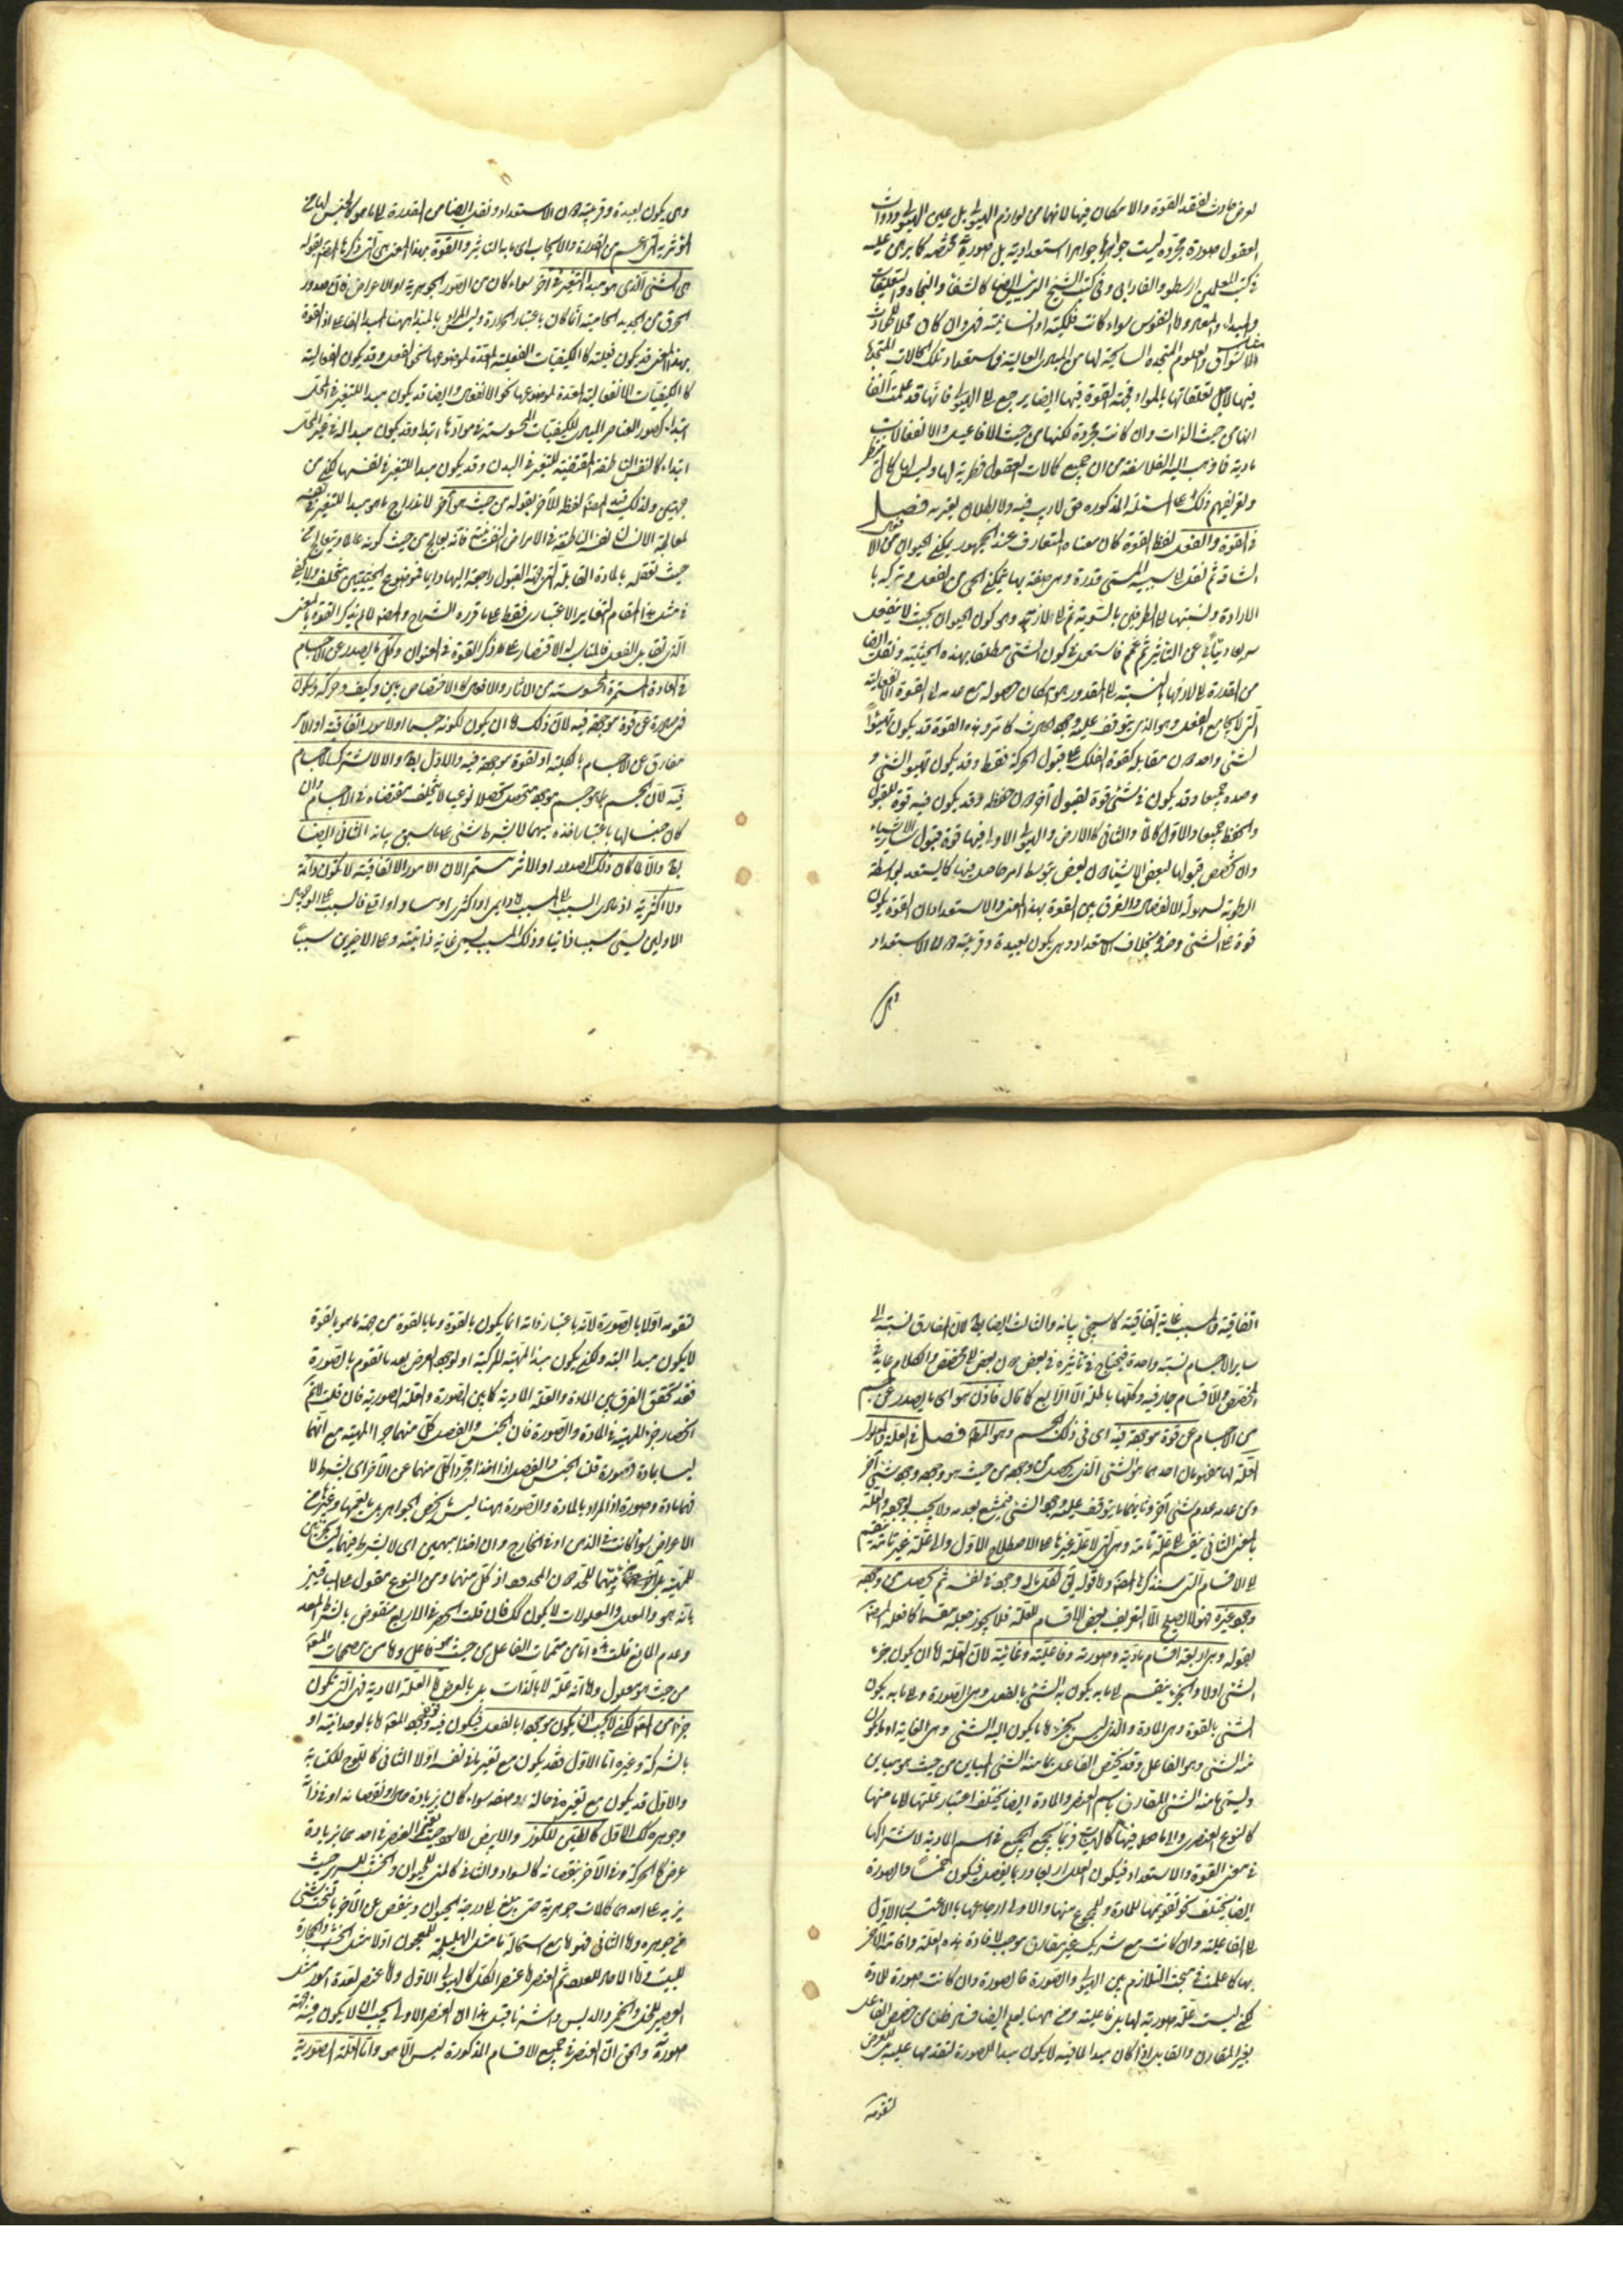 لعرض حادث لفقد القوة والامكان فيها لانهما من لوازم الهيولى بل عين الهيولى وذوات
العقول صورة مجردة ليست جواهرها جواهر استعدادية بل صورية محضة كما برهن عليه
في كتب المعلمين ارسطو والفارابي وفي كتب الشيخ الرئيس ايضا كالشفا والنجاة والتعليقات
والمبداء والمعاد واما النفوس سواء كانت فلكية او انسانية فهي وان كان محلا للحادث
الاشواق والعلوم المتجددة السانحة لها من المبادي العالية واستعداد تلك الكالات المتجددة
فيها لاجل تعلقاتها بالمواد فجهة القوة فيها ايضا يرجع الى الهيولى فانها قد علمت آنفا
انها من حيث الذات وان كانت مجردة لكنها من حيث الافاعيل والانفعالات
مادية فما ذهب اليه الفلاسفة من ان جميع كمالات العقول فطرية لها وليس لها كمال منتظر
وتعريفهم ذلك على اسئلة المذكوره حق لا ريب فيه ولا بطلان يعتريه فصل
في القوة والفعل لفظ القوة كان معناه المتعارف عند الجمهور تمكن الحيوان من الافعال
الشاقة ثم نقل الى سببه المسمى قدرة وهي صفة بها يتمكن الحي من الفعل وتركه با
الارادة ونسبتها الى الطرفين بالسوية ثم الى لازمه وهو كون الحيوان بحيث لا ينفعل
سريعا ولا يتأبى عن التأثير ثم عمم فاستعمل في كون الشئ مطلقا بهذه الحيثية ونقلت ايضا
من القدرة الى لازمها بالنسبة الى المقدور هو امكان حصوله مع عدمه اى القوة الانفعالية
التي لا يجامع الفعل وهو الذي يتوقف عليه وجود الحادث كما مر وهذه القوة قد يكون تهيوا
لشئ واحد دون مقابله كقوة الفلك على قبول الحركة فقط وقد يكون تهيوا لشئ و
وضده جميعا وقد يكون في شئ قوة لقبول آخر دون حفظه وقد يكون فيه قوة للقبول
والحفظ جميعا والاول كالماء والثاني كالارض والهيولى الاولى فيها قوة قبول ساير الاشياء
وان تخصص قبولها لبعض الاشياء دون بعض بتوسط امر حاصل فيها كما يستعد بواسطة
الرطوبة لسهولة الانفصال والفرق بين القوة بهذا المعنى والاستعداد ان القوة يكون
قوة على الشئ وضده بخلاف الاستعداد وهي يكون بعيدة وقريبة دون الاستعداد
وهي
وهي يكون بعيدة وقريبة دون الاستعداد ونقل ايضا من القدرة الى ما هو كالجنس لها من
المؤثرية التي اعم من القدرة والايجاب اى ما به التاثير والقوة بهذا المعنى هي التي ذكرها المصنف بقوله
هي الشئ الذي هو مبدأ التغير في آخر سواء كان من الصور الجوهرية او الاعراض فان صدور
الحرق من الحديد الحامية انما كان باعتبار الحرارة وليس المراد بالمبدا ههنا المبدأ الفاعل اذ القوة
بهذا المعنى قد يكون فعلية كالكيفيات الفعلية المعدة لموضوعها نحو الفعل وقد يكون انفعالية
كالكيفيات الانفعالية المعدة لموضوعها نحو الانفعال وايضا قد يكون مبدأ للتغير في المحل
ابتداء كصور العناصر المبادي للكيفيات المحسوسة في موادها ابتداء وقد يكون مبدأ له في غير المحل
ابتداء كالنفس الناطقة المقتضية للتغير في البدن وقد يكون مبدأ للتغير في نفسها لكن من
جهتين ولذلك قيد المصنف لفظ الآخر بقوله من حيث هو آخر لاندراج ما هو مبدا للتغير في نفسه
لمعالجة الانسان نفسه الناطقة في الامراض النفسانية فانه يعالج من حيث كونه عالما ويتعالج من
حيث تعلقه بالمادة القابلة التي جهة القبول راجعة اليها
في مثل هذا المقام التغاير الاعتباري فقط على ما قرره الشراح والمصنف لما لم يذكر القوة بالمعنى
الذي تقابل الفعل فالمناسب له الاقتصار على ذكر القوة في العنوان وكل ما يصدر عن الاجسام
في العادة المستمرة المحسوسة من الآثار والافعال كالاختصاص باين وكيف وحركة وسكون
فهي صادرة عن قوة موجودة فيه لان ذلك اما ان يكون لكونه جسما او لامور اتفاقية او لامر
مفارق عن الاجسام بالكلية او لقوة موجودة فيه والاول بط والا لاشترك الاجسام
فيه لان الجسم بما هو جسم موجود متحصل تحصلا نوعيا لا يتخلف مقتضاه في الاجسام وان
كان جنسا لها باعتبار اخذه مبهما لا بشرط شئ على ما سبق بيانه والثاني ايضا
بط والا لما كان ذلك الصدور او الاثر مستمر الان الامور الاتفاقية لا تكون دائمة
ولا اكثرية اذ تادى السبب الى المسبب اما دائمى او اكثرى او مساو او اقلى فالسبب على الوجهين
الاولين يسمى سببا ذاتيا وذلك المسبب يسمى غاية ذاتية وعلى الاخيرين سببا
اتفاقية والمسبب غاية اتفاقية كما سيجئ بيانه والثالث ايضا بط لان المفارق نسبته الى
ساير الاجسام نسبة واحدة فيحتاج في تاثيره في بعض دون بعض الى مخصص والكلام عايد في
المخصص والاقسام جارية فيه وكلها باطلة الا الرابع كما قال فاذن هو اى ما يصدر عن جسم
من الاجسام عن قوة موجودة فيه اى في ذلك الجسم وهو المط فصل في العلة والمعلول
العلة لها مفهومان احدهما هو الشئ الذي يحصل من وجوده من حيث هو وجوده وجود شئ آخر
ومن عدمه عدم شئ آخر وثانيهما ما يتوقف عليه وجود الشئ فيمتنع بعدمه ولا يجب بوجوده والعلة
بالمعنى الثاني ينقسم الى علة تامة وهي التي لا علة غيرها على الاصطلاح الاول والى علة غير تامة ينقسم
الى الاقسام التي سنذكرها المصنف واما قوله هي تقال لكل ما له وجود في نفسه ثم يحصل من وجوده
وجود غيره فهو لا يصلح الا لتعريف بعض الاقسام للعلة فلا يجوز جعله مقسما كما فعله المصنف
بقوله وهي اربعة اقسام مادية وصورية وفاعلية وغائية لان العلة اما ان يكون جزء
الشئ اولا والجزء ينقسم الى ما به يكون به الشئ بالفعل وهي الصورة والى ما به يكون
الشئ بالقوة وهي المادة والذي ليس بجزء اما ما يكون اليه الشئ وهي الغاية او ما يكون
منه الشئ وهو الفاعل وقد يختص الفاعل بما منه الشئ المباين من حيث هو مباين
وليسمى ما منه الشئ المقارن باسم العنصر والمادة ايضا يختلف اعتبار عليتها الى ما منها
كالنوع العنصري والى ما فيها كالهيئات فربما يجمع الجميع في اسم المادية لاشتراكها
في معنى القوة والاستعداد فيكون العلل اربعا وربما يفصل فيكون خمسا والصورة
ايضا يختلف نحو تقويمها للمادة وللمجموع منها والاولى ارجاعها بالاعتبار الاول
الى الفاعلية وان كانت مع شريك غير مفارق موجب لافادة هذه العلة واقامة الآخر
بها كما علمت في مبحث التلازم بين الهيولى والصورة فالصورة وان كانت صورة للمادة
لكن ليست علة صورية لها بل فاعلية ومن ههنا يعلم ايضا فساد ظن من خصص الفاعل
بغير المقارن والقابل اذا كان مبدأ لما فيه لا يكون مبدأ للصورة لتقدمها عليه بل للعرض
لتقومه
لتقومه اولا بالصورة لانه باعتبار ذاته انما يكون بالقوة وما بالقوة من جهة ما هو بالقوة
لا يكون مبدا البتة ولكن يكون مبدأ للمهية المركبة او لوجود العرض بعد ما تقوم بالصورة
فقد تحقق الفرق بين المادة والعلة المادية كما بين الصورة والعلة الصورية فان قلت لا نم
انحصار جزء المهية في المادة والصورة فان الجنس والفصل كل منهما جزء المهية مع انهما
ليسا بمادة وصورة قلت الجنس والفصل اذا اخذا مجردا كل منهما عن الآخر اى بشرط لا
فهما مادة وصورة اذ المراد بالمادة والصورة ههنا ليس ما يخص الجواهر بل ما يعمها وغيرها من
الاعراض سواء كانت في الذهن او في الخارج وان اخذا مبهمين اى لا بشرط فهما ليسا بجزئين
للمهية بل جزئيتهما للحد دون المحدود اذ كل منهما ومن النوع مقول على الباقيين
بانه هو والعلل والمعلولات لا يكون كك فان قلت الحصر في الاربع منقوض بالشرط والمعد
وعدم المانع قلت هذه اما من متممات الفاعل من حيث هو فاعل واما من مصححات المعلول
من حيث هو معلول واما انه علة لا بالذات بل بالعرض اما العلة المادية فهي التي تكون
جزء من المعلول لكن لا يجب ان يكون موجودا بالفعل فيكون فيه قوة وجود المعلول اما بالوحدانية او
بالشركة وغيره اما الاول فقد يكون مع تغير ما في نفسه اولا الثاني كاللوح للكتابة
والاول قد يكون مع تغيره في حاله وصفة سواء كان بزيادة حال او نقصانه او في ذاته
وجوهره كك الاول كالطين للكوز والابيض للاسود حيث تغير العنصر في احدهما بزيادة
عرض كالحركة وفي الآخر بنقصانه كالسواد والثاني كالمني للحيوان والخشب للسرير حيث
يزيد على احدهما كالات جوهرية حتى يبلغ الى درجة الحيوان وينقص عن الآخر بالنحت شئ
من جوهره واما الثاني فهو اما مع استحالة ما مثل الهليلجة للمعجون اولا مثل الخشب والحجارة
للبيت واما الآحاد للعدد ثم العنصر اما عنصر الكل كالهيولى الاولى واما عنصر لعدة امور مثل
العصير للخل والخمر والدبس
صورة والحق ان العنصر في جميع الاقسام المذكورة ليس الا هو واما العلة الصورية